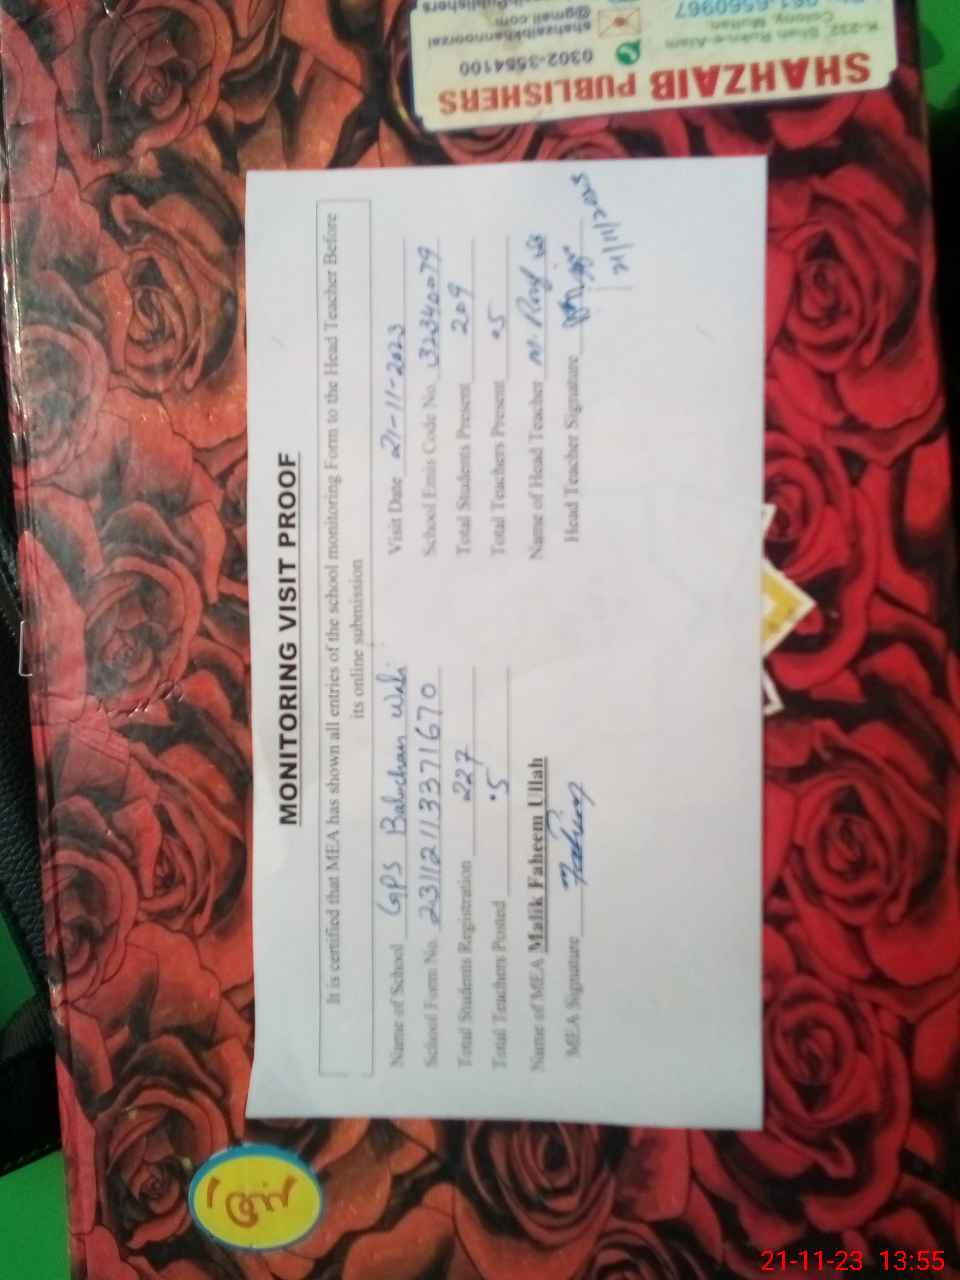 MONITORING VISIT PROOF
It is certified that MEA has shown all entries of the school monitoring Form to the Head Teacher Before
its online submission
Name of School GPS Balochan Wali Visit Date 21-11-2023
School Form No. 23112113371670 School Emis Code No. 32340079
Total Students Registration 227 Total Students Present 209
Total Teachers Posted 05 Total Teachers Present 05
Name of MEA Malik Faheem Ullah Name of Head Teacher M.
MEA Signature Faheem Head Teacher Signature
21/11/2023
SHAHZAIB PUBLISHERS
0302-3554100
K-232, Shah Rukn-e-Alam
Colony, Multan.
shahzaibkhannoorzai
@gmail.com
061-6560967
21-11-23 13:55